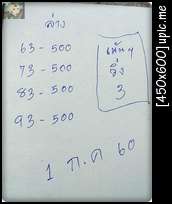 ล่าง
63 - 500
73 - 500
83 - 500
93 - 500
เน้นๆ
วิ่ง
3
1 ก.ค 60
[450x600] upic.me